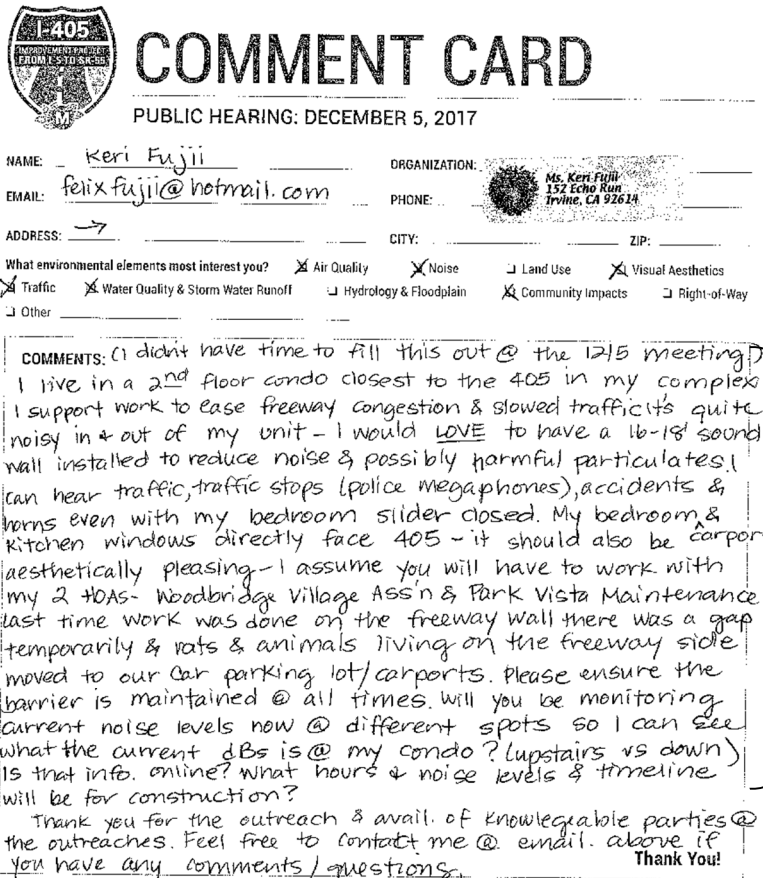 I-405
IMPROVEMENT PROJECT
FROM I-5 TO SR-55
COMMENT CARD
PUBLIC HEARING: DECEMBER 5, 2017
NAME: Keri Fujii
ORGANIZATION:
Ms. Keri Fujii
152 Echo Run
Irvine, CA 92614
EMAIL: felixfujii@hotmail.com
PHONE:
ADDRESS: →
CITY: ZIP:
What environmental elements most interest you? ☒ Air Quality ☒ Noise ☐ Land Use ☒ Visual Aesthetics
☒ Traffic ☒ Water Quality & Storm Water Runoff ☐ Hydrology & Floodplain ☒ Community Impacts ☐ Right-of-Way
☐ Other
COMMENTS: (I didn't have time to fill this out @ the 12/5 meeting)
I live in a 2nd floor condo closest to the 405 in my complex
I support work to ease freeway congestion & slowed traffic. It's quite
noisy in & out of my unit - I would LOVE to have a 16-18' sound
wall installed to reduce noise & possibly harmful particulates. I
can hear traffic, traffic stops (police megaphones), accidents &
horns even with my bedroom slider closed. My bedroom &
Kitchen windows directly face 405 - it should also be ^ carpor
aesthetically pleasing - I assume you will have to work with
my 2 HOAs - Woodbridge Village Ass'n & Park Vista Maintenance
Last time work was done on the freeway wall there was a gap
temporarily & rats & animals living on the freeway side
moved to our car parking lot/carports. Please ensure the
barrier is maintained @ all times. Will you be monitoring
current noise levels now @ different spots so I can see
what the current dBs is @ my condo? (upstairs vs down)
Is that info. online? What hours & noise levels & timeline
will be for construction?
Thank you for the outreach & avail. of knowlegeable parties @
the outreaches. Feel free to contact me @ email. above if
you have any comments/questions.
Thank You!